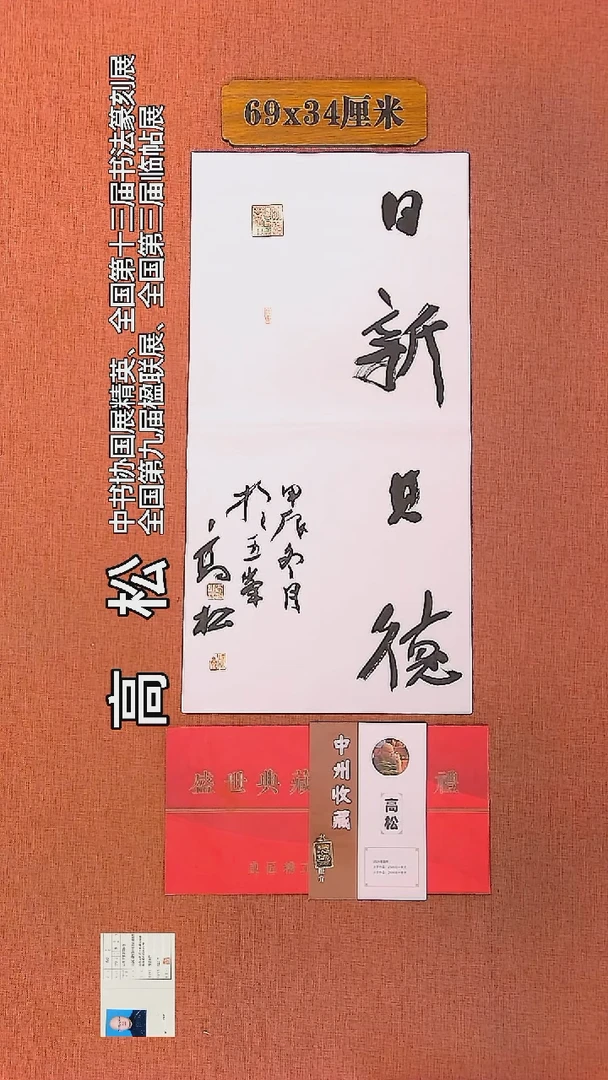 69x34厘米
日新其德
甲辰冬月
於玉峯
高松
高 松
中书协国展精英、全国第十三届书法篆刻展
全国第九届楹联展、全国第三届临帖展
盛世典藏
禮
中州收藏
高松